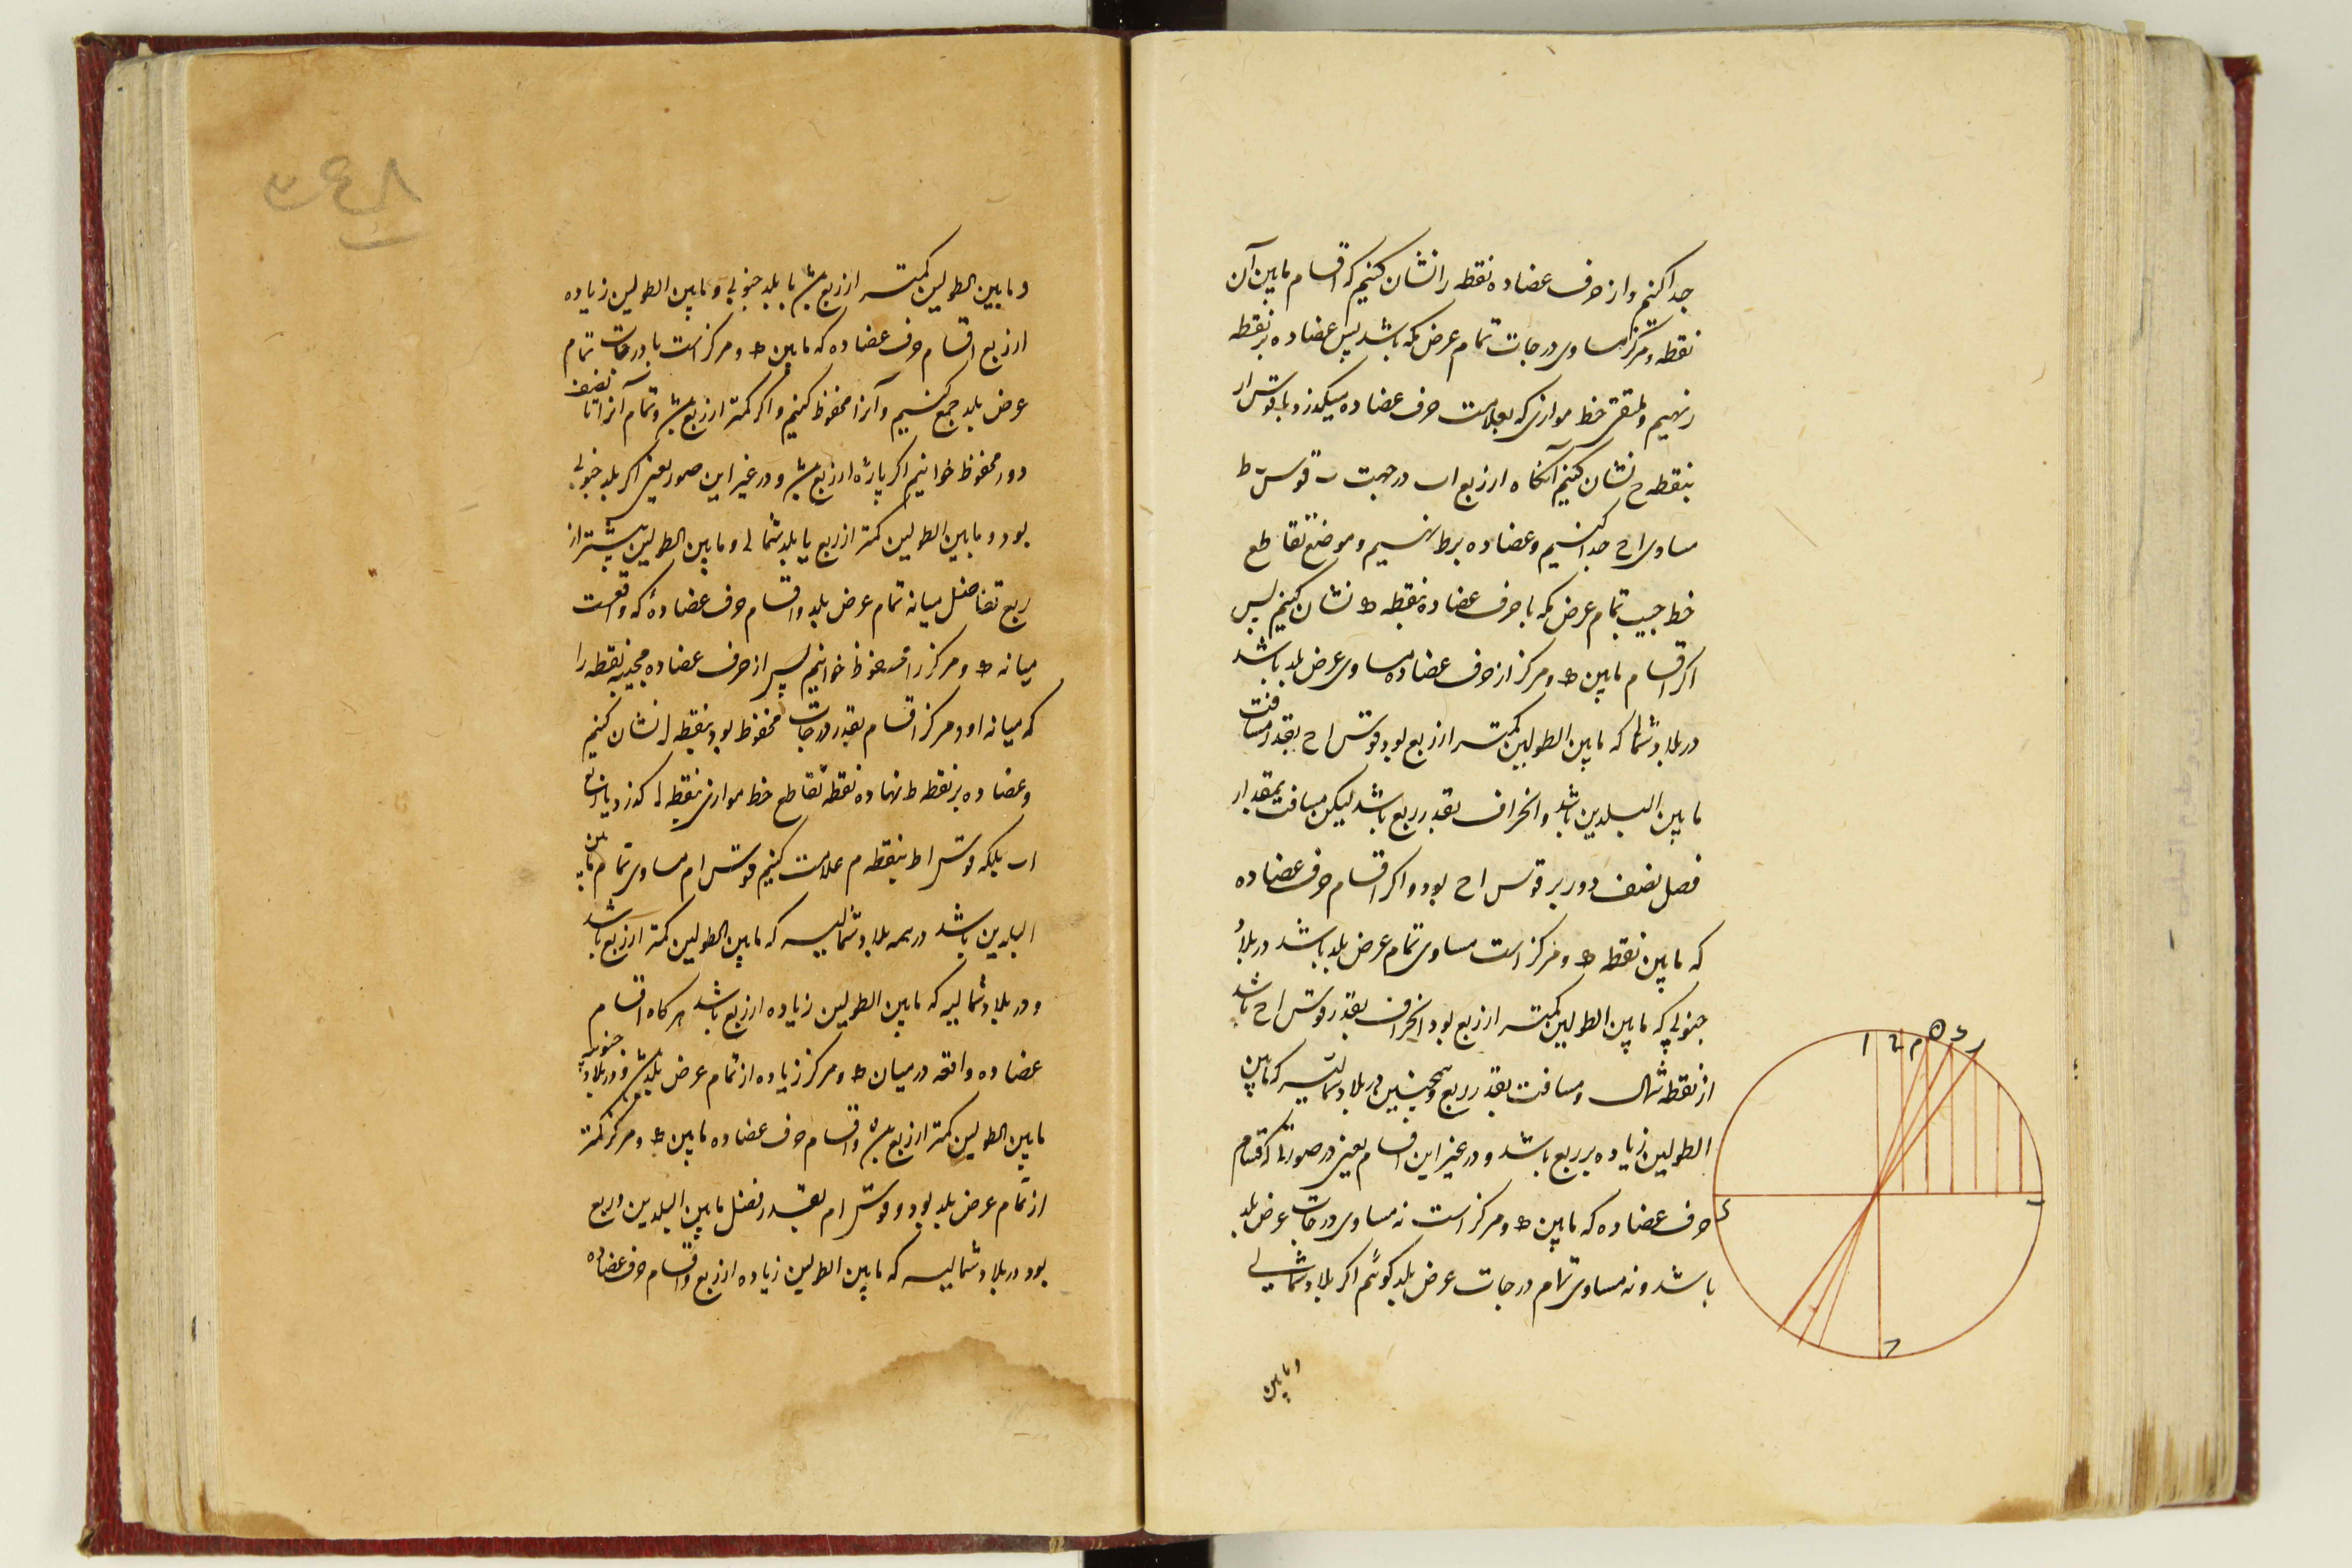 جدا کنیم و از حرف عضاده نقطه را نشان کنیم که اقسام مابین آن
نقطه و مرکز مساوی درجات تمام عرض مکه باشد پس عضاده بر نقطه
ر نهیم و ملتقی خط موازی که بعلامت حرف عضاده میگذرد با قوس ار
بنقطه ح نشان کنیم آنکاه از ربع اب در جهت ب قوس ط
مساوی اح جدا کنیم و عضاده بر ط نهیم و موضع تقاطع
خط جیب تمام عرض مکه با حرف عضاده بنقطه ط نشان کنیم پس
اکر اقسام مابین ط و مرکز از حرف عضاده مساوی عرض بلد باشد
در بلاد شمالی که مابین الطولین کمتر از ربع بود قوس اح بقدر مسافت
مابین البلدین باشد و انحراف بقدر ربع باشد لیکن مسافت بمقدار
فصل نصف دور بر قوس اح بود و اکر اقسام حرف عضاده
که مابین نقطه ط و مرکز است مساوی تمام عرض بلد باشد در بلاد
جنوبی که مابین الطولین کمتر از ربع بود انحراف بقدر قوس اح باشد
از نقطه شمال و مسافت بقدر ربع و همچنین در بلاد شمالیه که مابین
الطولین زیاده بر ربع باشد و در غیر این اقسام یعنی در صورتی که اقسام
حرف عضاده که مابین ط و مرکز است نه مساوی درجات عرض بلد
باشد و نه مساوی تمام درجات عرض بلد کوئیم اکر بلاد شمالی
و مابین
ا ح م ه ر
ب
د
و مابین الطولین کمتر از ربع بود یا بلد جنوبی و مابین الطولین زیاده
از ربع اقسام حرف عضاده که مابین ط و مرکز است با درجات تمام
عرض بلد جمع کنیم و آنرا محفوظ کنیم و اکر کمتر از ربع بود و تمام آنرا تا نصف
دور محفوظ خوانیم اکر زیاده از ربع بود و در غیر این صور یعنی اکر بلد جنوبی
بود و مابین الطولین کمتر از ربع یا بلد شمالی و مابین الطولین بیشتر از
ربع تفاضل میانه تمام عرض بلد و اقسام حرف عضادهٔ که واقعست
میانه ط و مرکز را محفوظ خوانیم پس از حرف عضاده مجیبه نقطه را
که میانه او و مرکز اقسام بقدر درجات محفوظ بود بنقطه ل نشان کنیم
و عضاده بر نقطه ط نهاده نقطه تقاطع خط موازی بنقطه ل کذرد با ربع
اب بلکه قوس اط بنقطه م علامت کنیم قوس ام مساوی تمام مابین
البلدین باشد در همه بلاد شمالیه که مابین الطولین کمتر از ربع باشد
و در بلاد شمالیه که مابین الطولین زیاده از ربع باشد هرکاه اقسام
عضاده واقعه در میان ط و مرکز زیاده از تمام عرض بلد بود و در بلاد جنوبیه
مابین الطولین کمتر از ربع بود و اقسام حرف عضاده مابین ط و مرکز کمتر
از تمام عرض بلد بود و قوس ام بقدر فضل مابین البلدین و ربع
بود در بلاد شمالیه که مابین الطولین زیاده از ربع و اقسام حرف عضاده